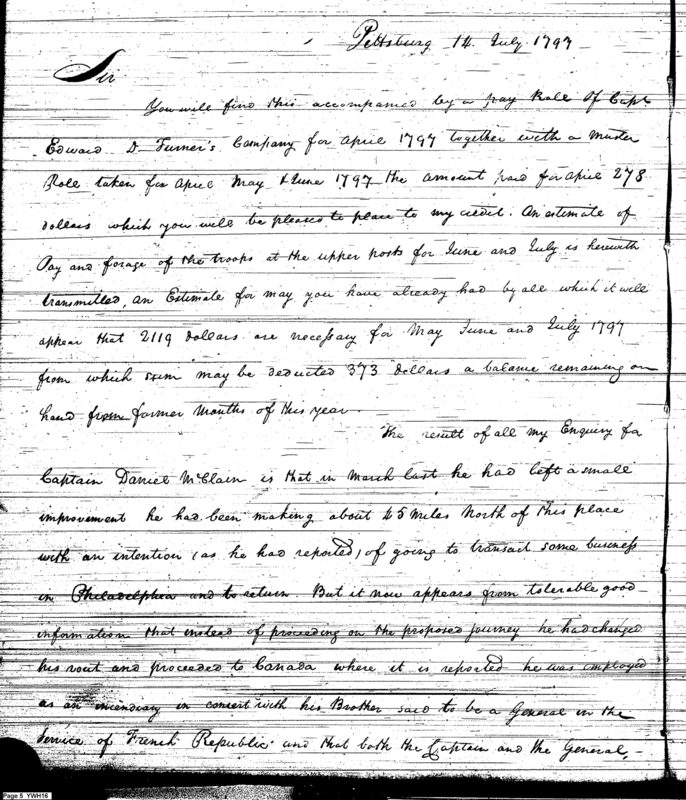 Pittsburg 14 July 1797
Sir
You will find this accompanied by a pay Role of Capt
Edward D Turner's Company for April 1797 together with a Muster
Role taken for April May & June 1797 the amount paid for April 278
dollars which you will be pleased to place to my credit. An estimate of
Pay and forage of the troops at the upper posts for June and July is herewith
transmitted, an Estimate for May you have already had by all which it will
appear that 2119 dollars are necessary for May June and July 1797
from which sum may be deducted 373 Dollars a balance remaining on
hand from former Months of this year.
The result of all my Enquiry for
Captain Daniel McClain is that in March last he had left a small
improvement he had been making about 45 Miles North of this place
with an intention (as he had reported) of going to transact some business
in Philadelphia and to return. But it now appears from tolerable good
information that instead of proceeding on the proposed journey he had changed
his rout and proceeded to Canada where it is reported he was employed
as an incendiary in concert with his Brother said to be a General in the
Service of French Republic and that both the Captain and the General,
Page 5 YWH16